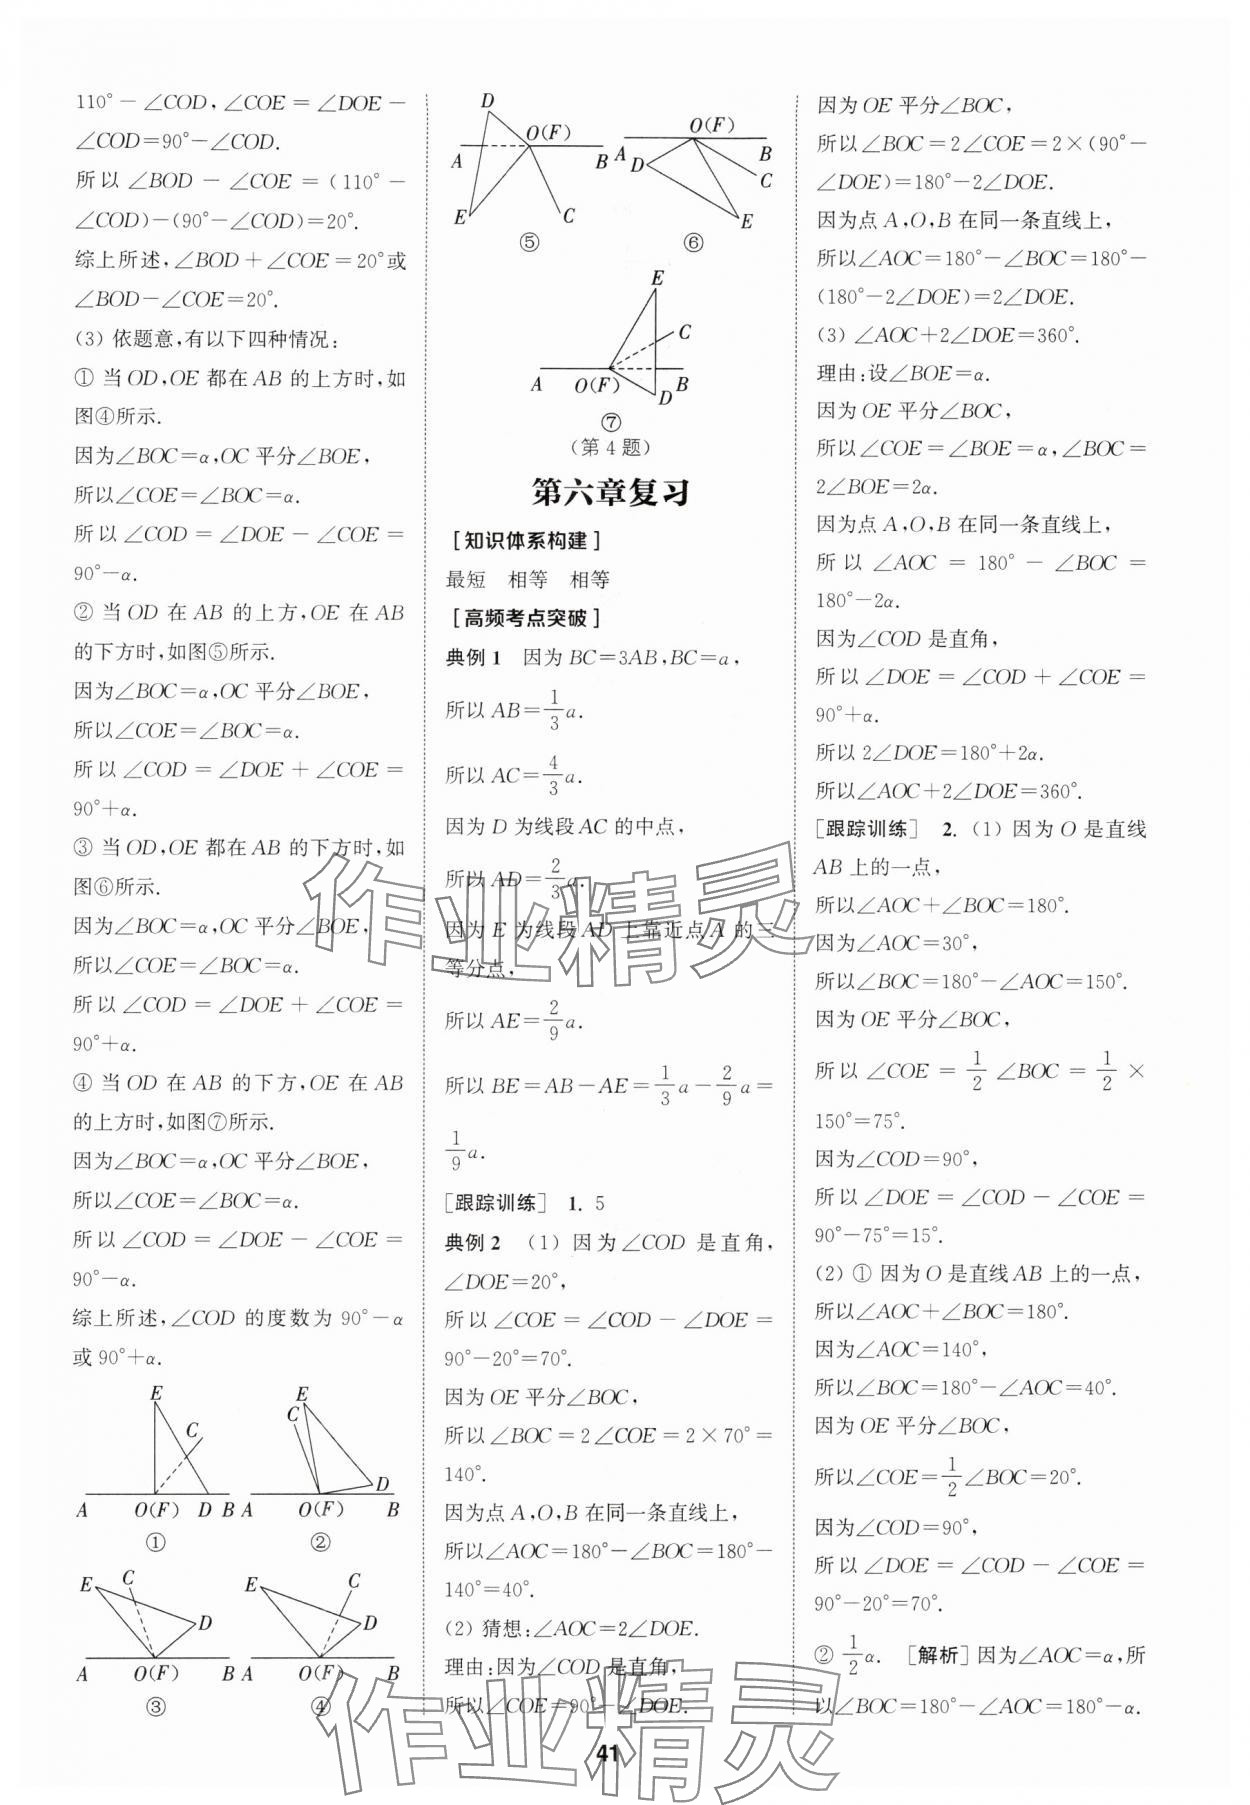 110°－∠COD,∠COE＝∠DOE－
∠COD＝90°－∠COD.
所以∠BOD－∠COE＝(110°－
∠COD)－(90°－∠COD)＝20°.
综上所述,∠BOD＋∠COE＝20°或
∠BOD－∠COE＝20°.
(3) 依题意,有以下四种情况:
① 当OD,OE都在AB的上方时,如
图④所示.
因为∠BOC＝α,OC平分∠BOE,
所以∠COE＝∠BOC＝α.
所以∠COD＝∠DOE－∠COE＝
90°－α.
② 当OD在AB的上方,OE在AB
的下方时,如图⑤所示.
因为∠BOC＝α,OC平分∠BOE,
所以∠COE＝∠BOC＝α.
所以∠COD＝∠DOE＋∠COE＝
90°＋α.
③ 当OD,OE都在AB的下方时,如
图⑥所示.
因为∠BOC＝α,OC平分∠BOE,
所以∠COE＝∠BOC＝α.
所以∠COD＝∠DOE＋∠COE＝
90°＋α.
④ 当OD在AB的下方,OE在AB
的上方时,如图⑦所示.
因为∠BOC＝α,OC平分∠BOE,
所以∠COE＝∠BOC＝α.
所以∠COD＝∠DOE－∠COE＝
90°－α.
综上所述,∠COD的度数为90°－α
或90°＋α.
E
C
A O(F) D B
①
E
C
D
A O(F) B
②
E C
D
A O(F) B
③
E C
D
A O(F) B
④
D
O(F)
A B
E C
⑤
O(F)
A B
D C
E
⑥
E
C
A O(F) B
D
⑦
(第4题)
第六章复习
[知识体系构建]
最短 相等 相等
[高频考点突破]
典例1 因为BC＝3AB,BC＝a,
所以AB＝1/3a.
所以AC＝4/3a.
因为D为线段AC的中点,
所以AD＝2/3a.
因为E为线段AD上靠近点A的三
等分点,
所以AE＝2/9a.
所以BE＝AB－AE＝1/3a－2/9a＝
1/9a.
[跟踪训练] 1. 5
典例2 (1) 因为∠COD是直角,
∠DOE＝20°,
所以∠COE＝∠COD－∠DOE＝
90°－20°＝70°.
因为OE平分∠BOC,
所以∠BOC＝2∠COE＝2×70°＝
140°.
因为点A,O,B在同一条直线上,
所以∠AOC＝180°－∠BOC＝180°－
140°＝40°.
(2) 猜想:∠AOC＝2∠DOE.
理由:因为∠COD是直角,
所以∠COE＝90°－∠DOE.
因为OE平分∠BOC,
所以∠BOC＝2∠COE＝2×(90°－
∠DOE)＝180°－2∠DOE.
因为点A,O,B在同一条直线上,
所以∠AOC＝180°－∠BOC＝180°－
(180°－2∠DOE)＝2∠DOE.
(3) ∠AOC＋2∠DOE＝360°.
理由:设∠BOE＝α.
因为OE平分∠BOC,
所以∠COE＝∠BOE＝α,∠BOC＝
2∠BOE＝2α.
因为点A,O,B在同一条直线上,
所以∠AOC＝180°－∠BOC＝
180°－2α.
因为∠COD是直角,
所以∠DOE＝∠COD＋∠COE＝
90°＋α.
所以2∠DOE＝180°＋2α.
所以∠AOC＋2∠DOE＝360°.
[跟踪训练] 2. (1) 因为O是直线
AB上的一点,
所以∠AOC＋∠BOC＝180°.
因为∠AOC＝30°,
所以∠BOC＝180°－∠AOC＝150°.
因为OE平分∠BOC,
所以∠COE＝1/2∠BOC＝1/2×
150°＝75°.
因为∠COD＝90°,
所以∠DOE＝∠COD－∠COE＝
90°－75°＝15°.
(2) ① 因为O是直线AB上的一点,
所以∠AOC＋∠BOC＝180°.
因为∠AOC＝140°,
所以∠BOC＝180°－∠AOC＝40°.
因为OE平分∠BOC,
所以∠COE＝1/2∠BOC＝20°.
因为∠COD＝90°,
所以∠DOE＝∠COD－∠COE＝
90°－20°＝70°.
② 1/2α. [解析]因为∠AOC＝α,所
以∠BOC＝180°－∠AOC＝180°－α.
作业精灵
作业精灵
41